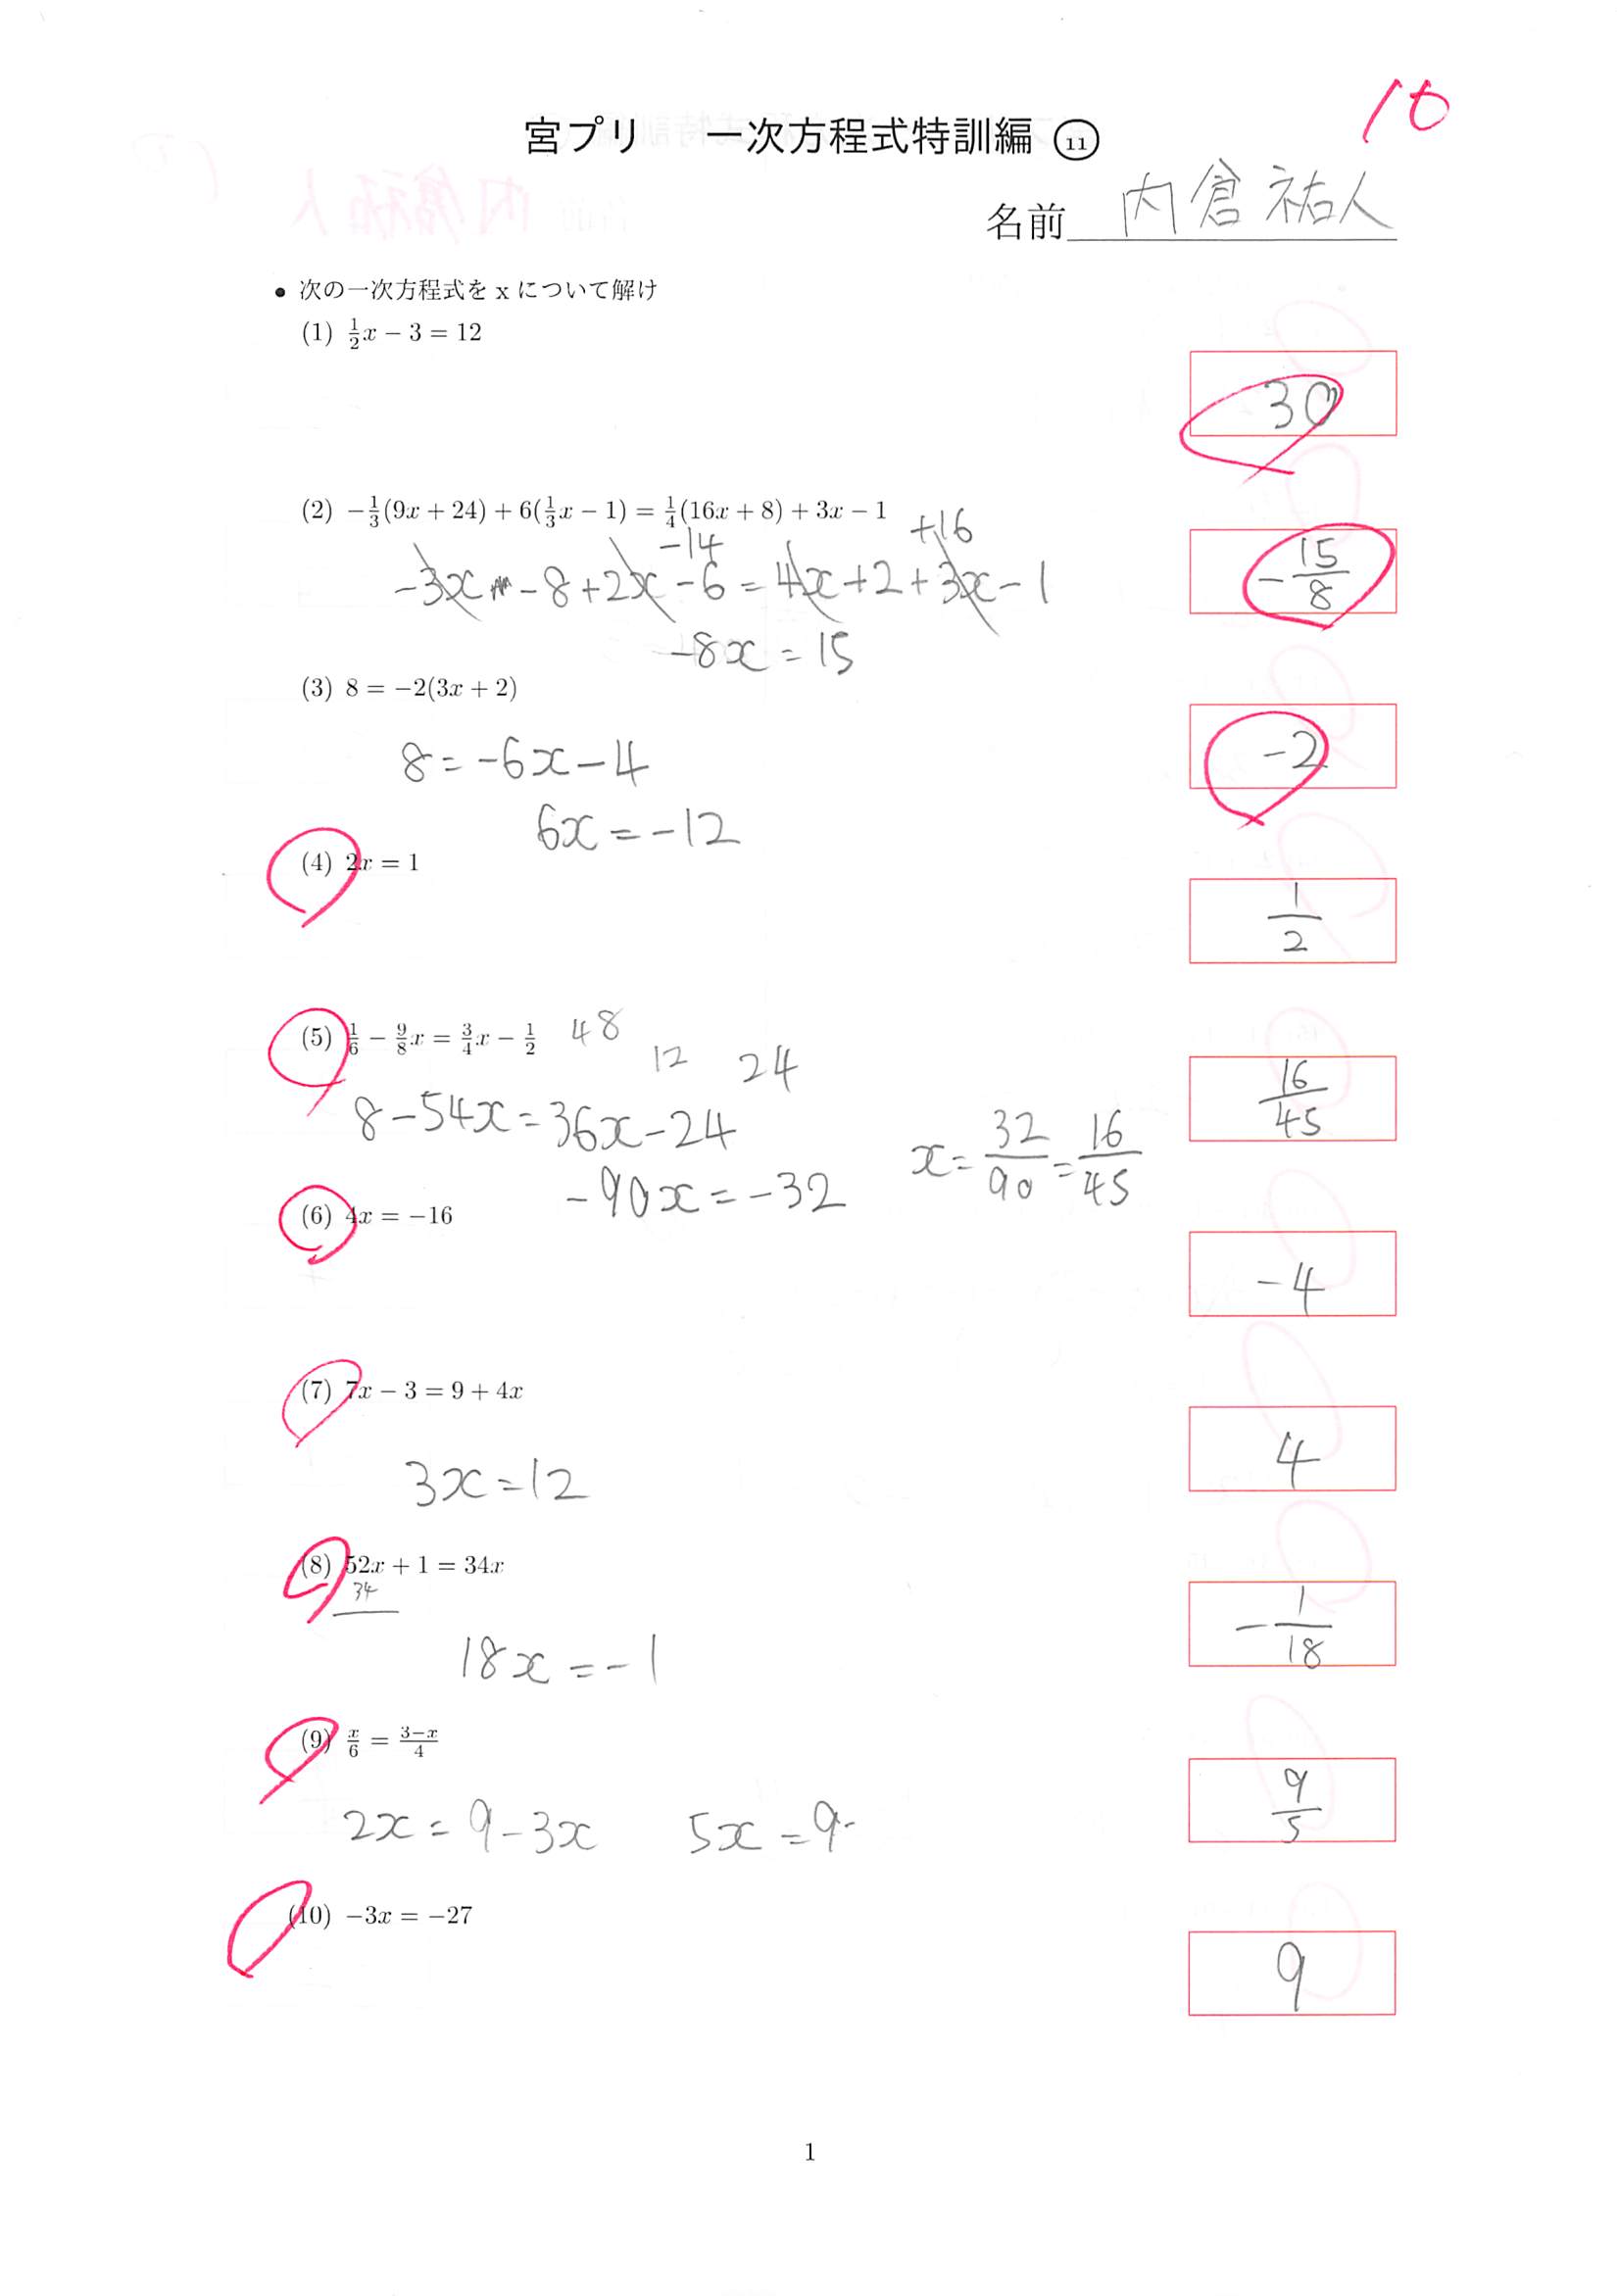 10
宮プリ 一次方程式特訓編 ⑪
名前 内倉祐人
• 次の一次方程式を x について解け
(1) \frac{1}{2}x − 3 = 12
30
(2) −\frac{1}{3}(9x + 24) + 6(\frac{1}{3}x − 1) = \frac{1}{4}(16x + 8) + 3x − 1
-14 +16
-3x -8+2x-6=4x+2+3x-1
-\frac{15}{8}
-8x=15
(3) 8 = −2(3x + 2)
8=-6x-4
-2
6x=-12
(4) 2x = 1
\frac{1}{2}
(5) \frac{1}{6} − \frac{9}{8}x = \frac{3}{4}x − \frac{1}{2} 48
12 24
8-54x=36x-24
\frac{16}{45}
-90x=-32 x=\frac{32}{90}=\frac{16}{45}
(6) 4x = −16
-4
(7) 7x − 3 = 9 + 4x
3x=12
4
(8) 52x + 1 = 34x
34
18x=-1
-\frac{1}{18}
(9) \frac{x}{6} = \frac{3−x}{4}
2x=9-3x 5x=9
\frac{9}{5}
(10) −3x = −27
9
1